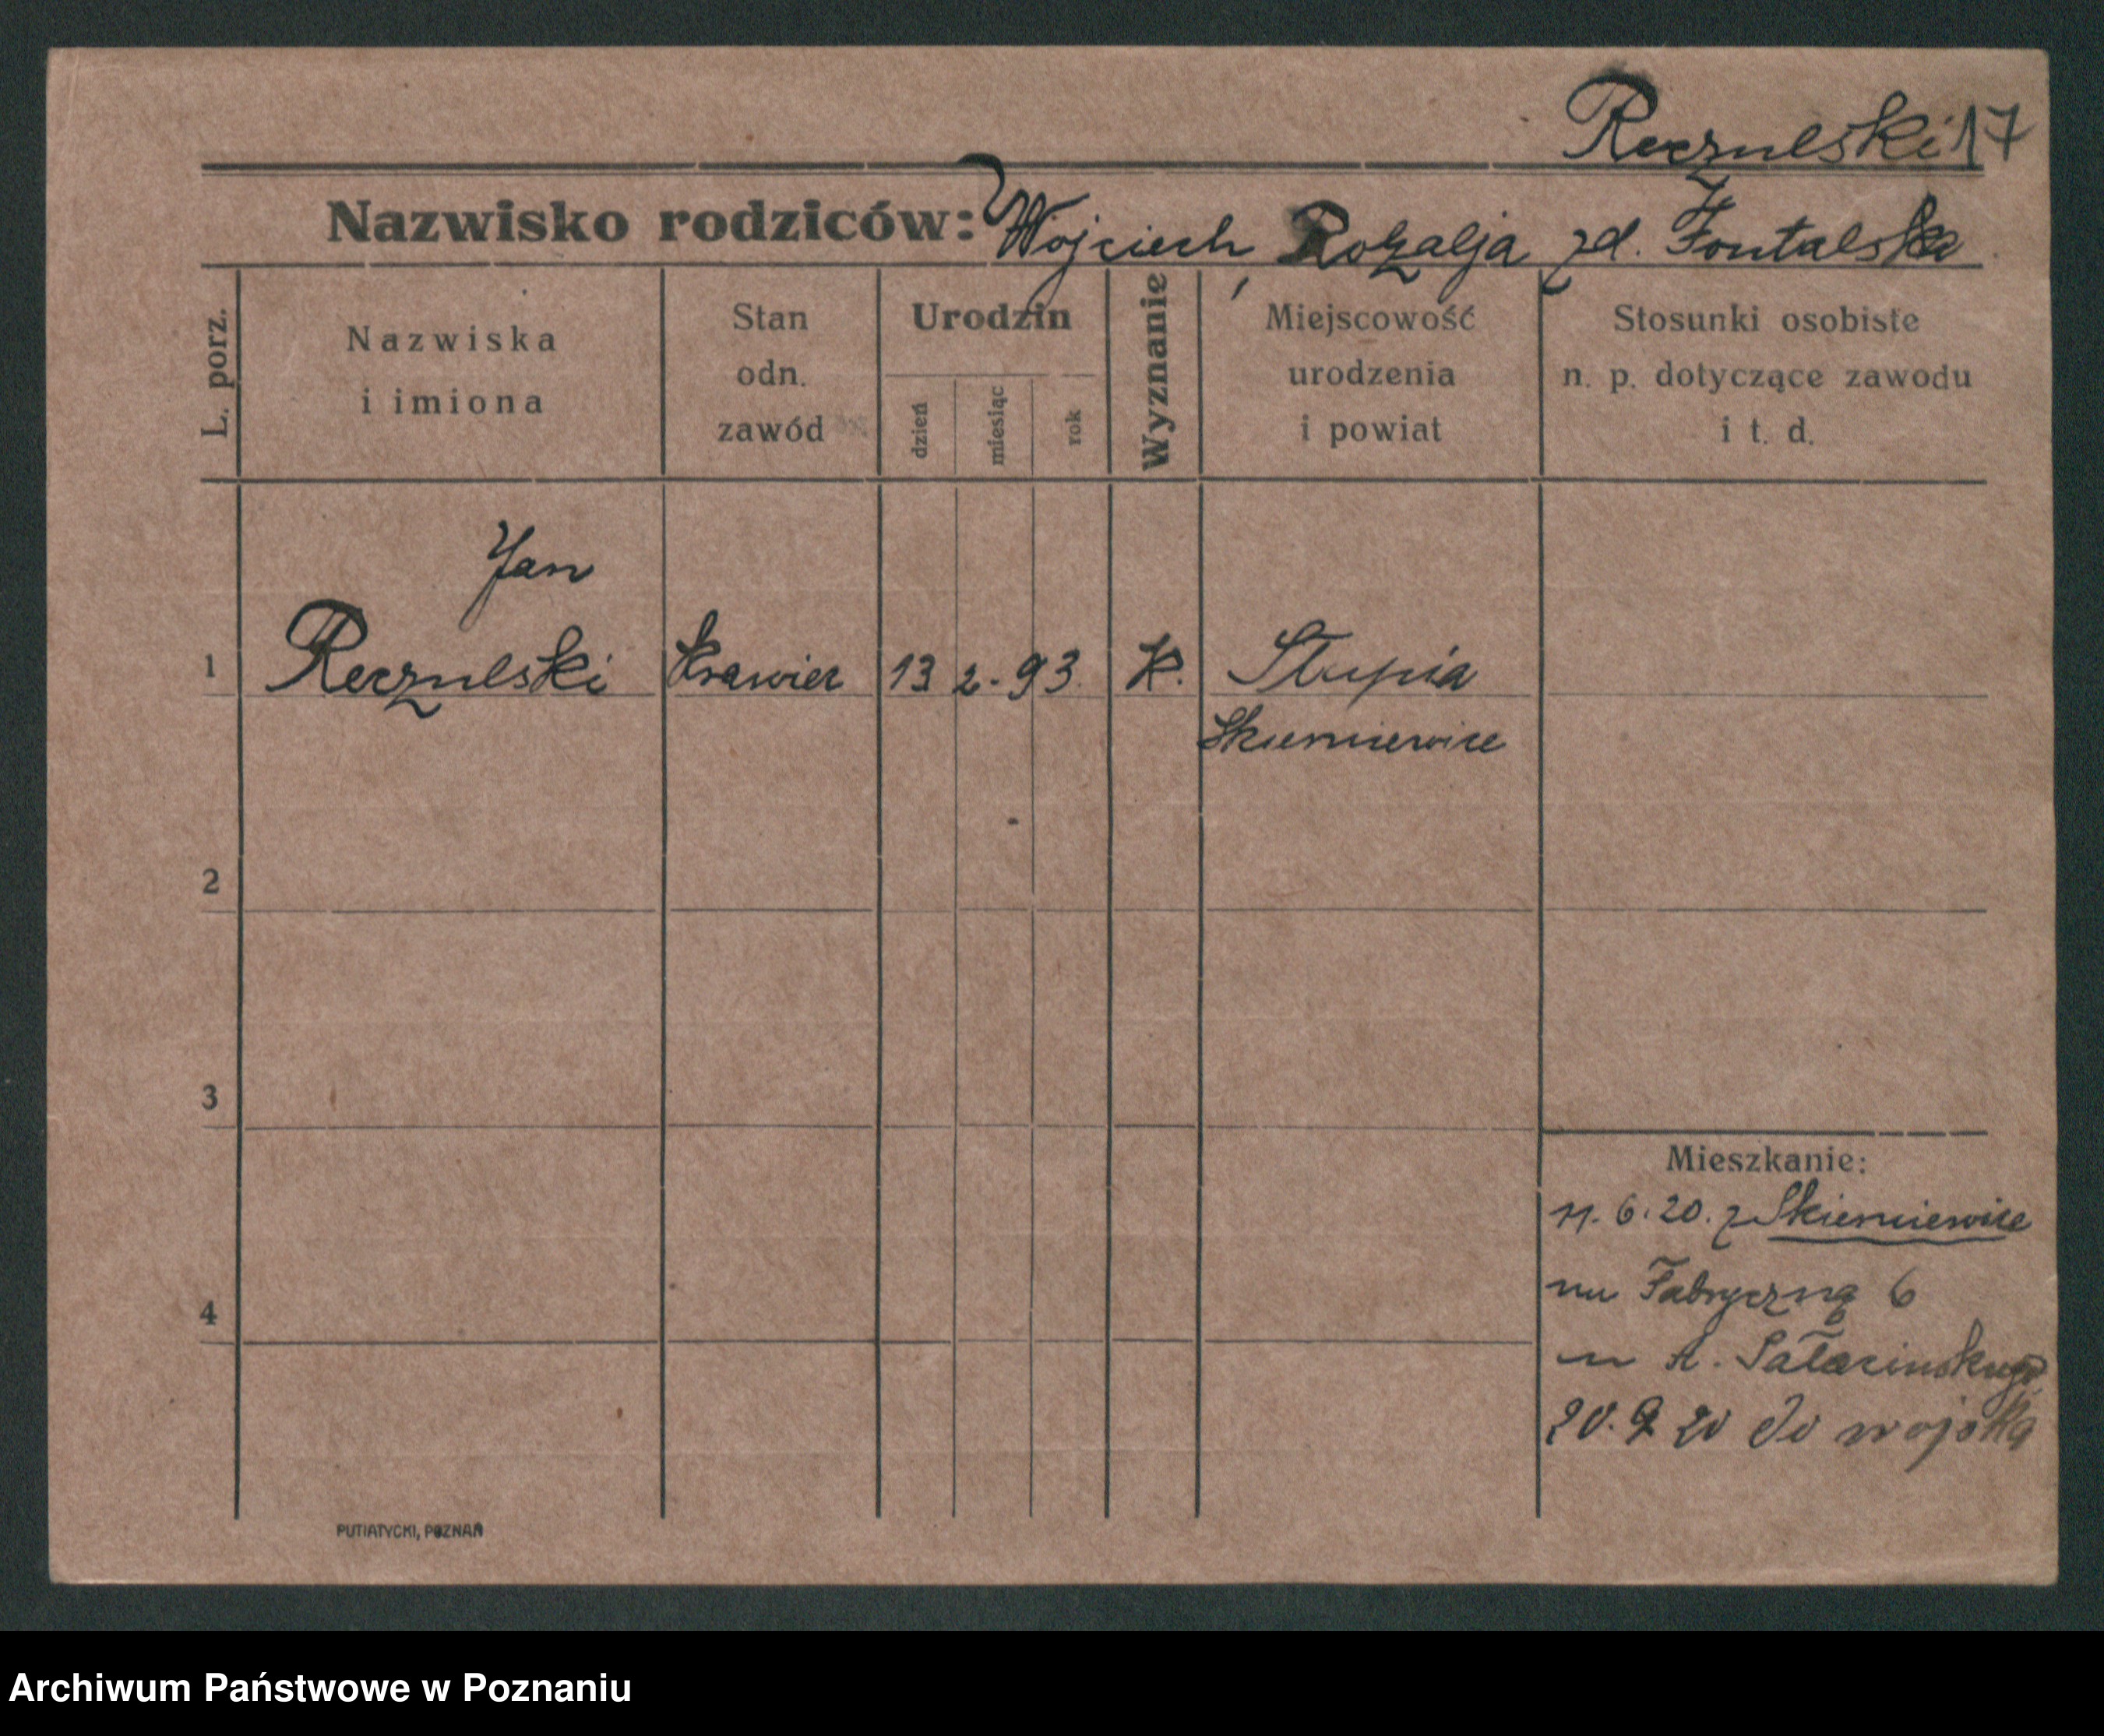 Reczulski 17
Nazwisko rodziców: Wojciech, Rozalja zd. Fontalska
L. porz.
Nazwiska
i imiona
Stan
odn.
zawód
Urodzin
dzień
miesiąc
rok
Wyznanie
Miejscowość
urodzenia
i powiat
Stosunki osobiste
n. p. dotyczące zawodu
i t. d.
Jan
1 Reczulski krawiec 13 2. 93. K. Słupia
Skierniewice
2
3
4
Mieszkanie:
11. 6. 20. z Skierniewice
Fabryczną 6
A.
20. 9 20 do wojska
PUTIATYCKI, POZNAŃ
Archiwum Państwowe w Poznaniu